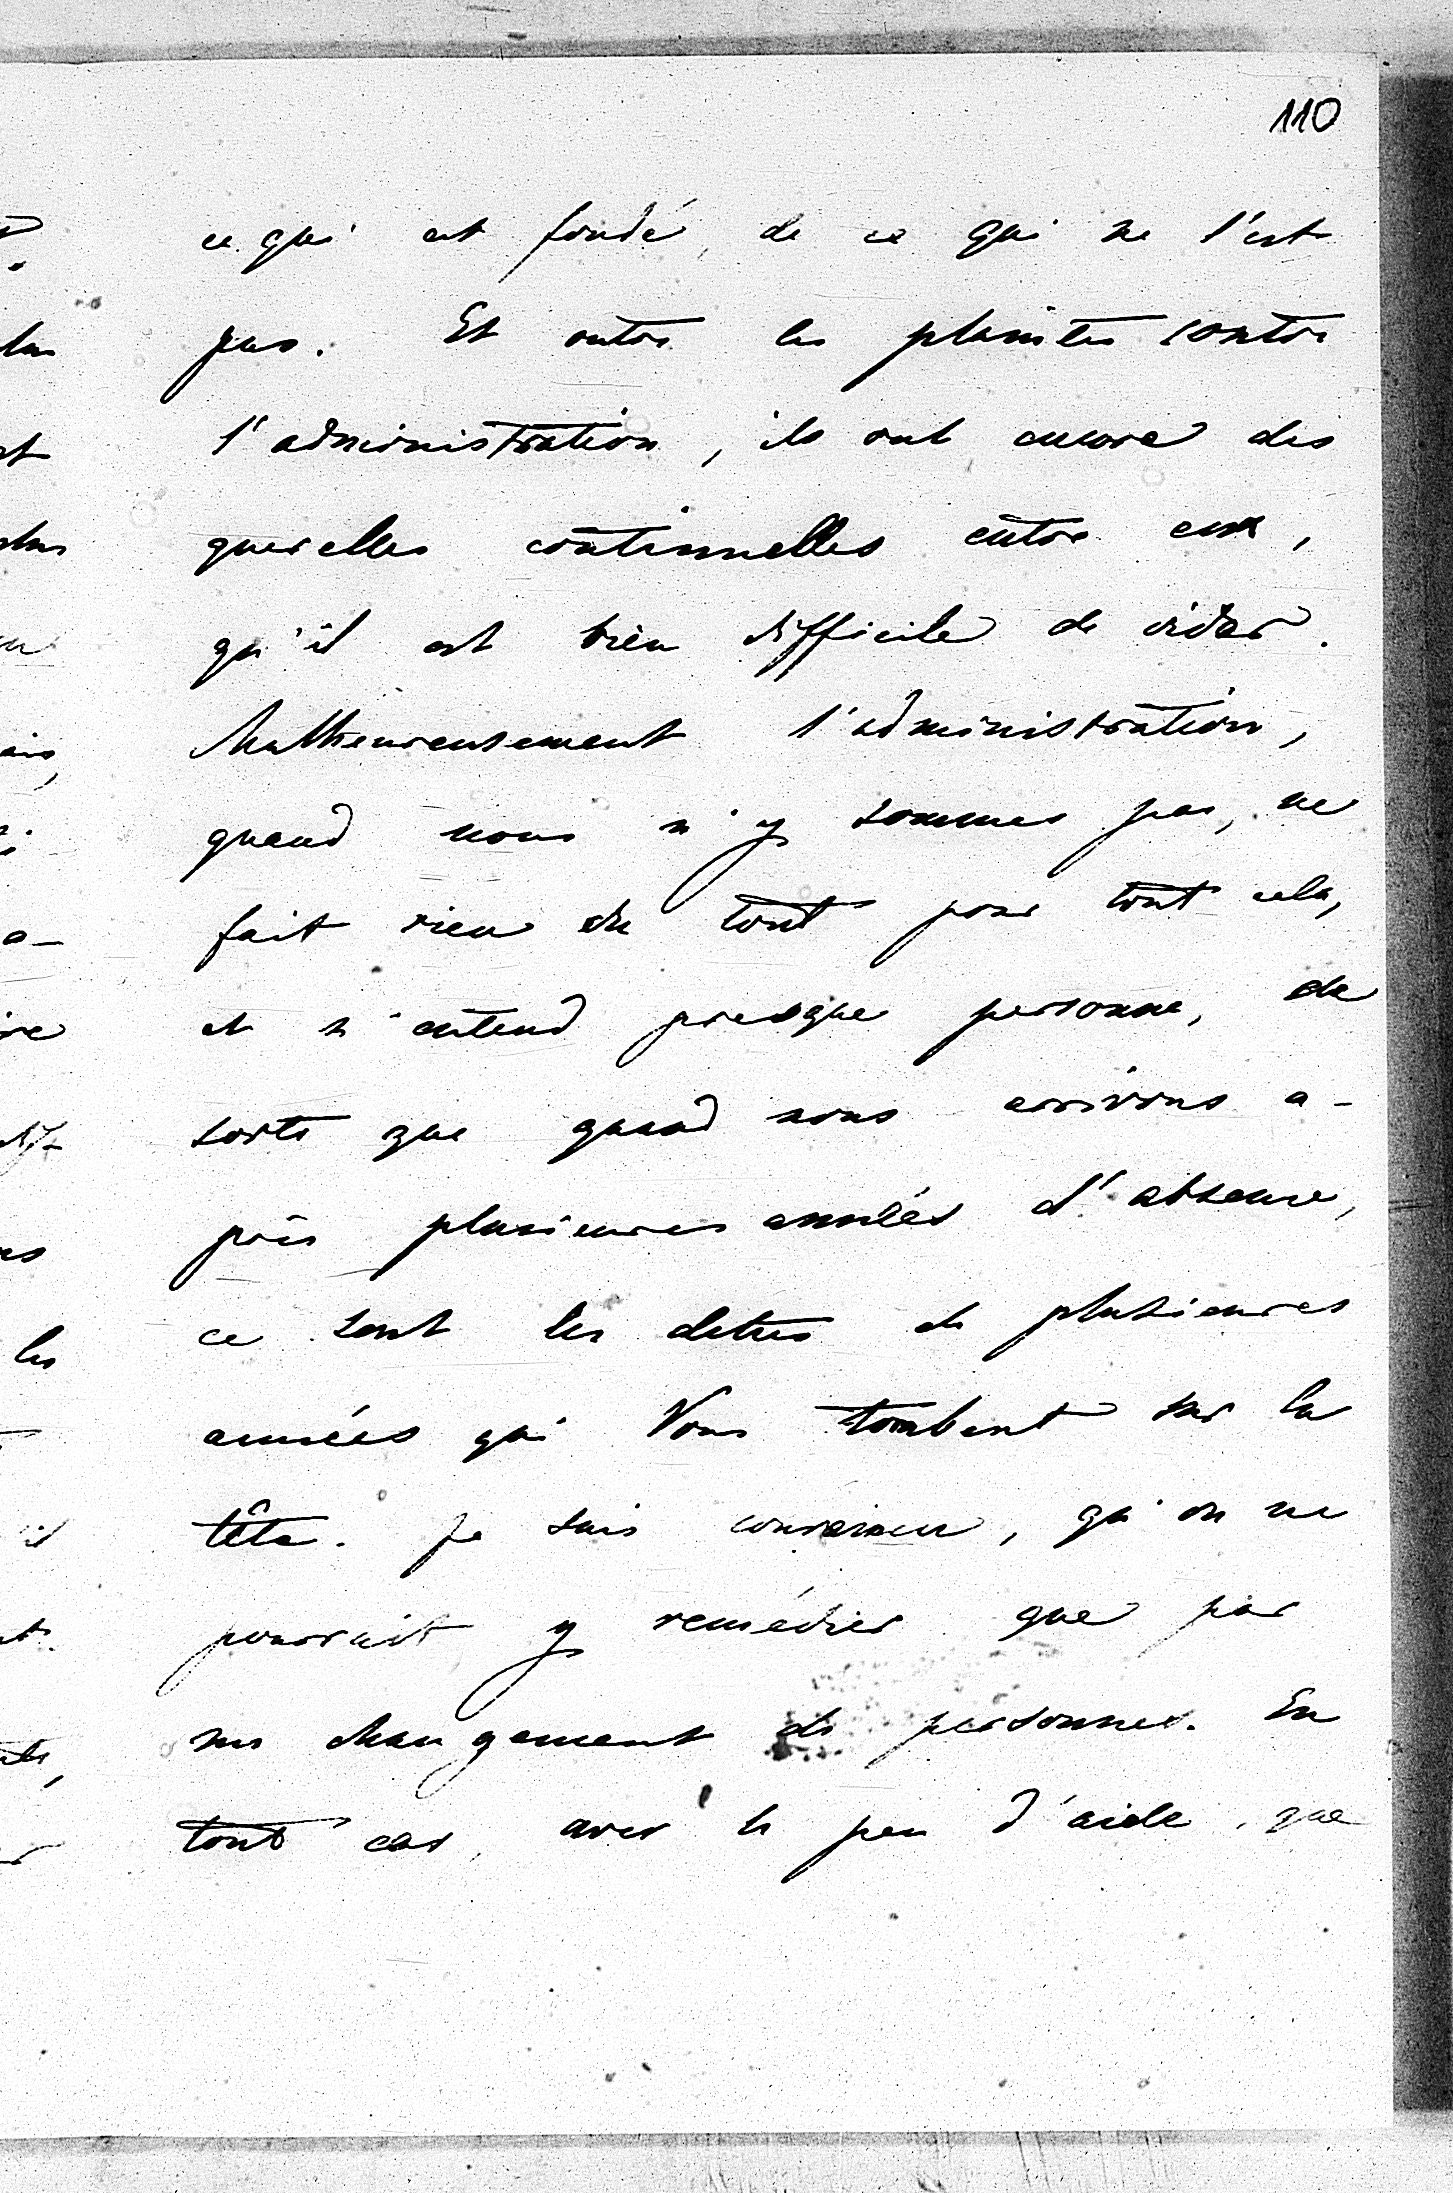 110
ce qui est fondé, de ce qui ne l'est
pas. Et outre les plaintes contre
l'administration, ils ont encore des
querelles continuelles entre eux,
qu'il est bien difficile de vider.
Malheureusement l'administration,
quand nous n'y sommes pas, ne
fait rien du tout pour tout cela,
et n'entend presque personne, de
sorte que quand nous arrivons a-
près plusieures années d'absence,
ce sont les dettes de plusieures
années qui Vous tombent sur la
tête. Je suis convaincu, qu'on ne
pourrait y remédier que par
un changement de personnes. En
tout cas, avec le peu d'aide, que